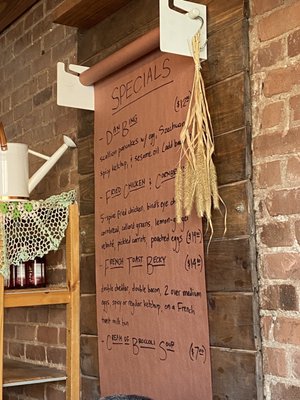 SPECIALS
- DAN BING ($12)
scallion pancakes w/ egg, Szechuan
spicy ketchup, & sesame oil (add
- FRIED CHICKEN & CORNBREAD
5-spice fried chicken, bird's eye
cornbread, collard greens, lemon
relish, pickled carrots, poached eggs ($19)
- FRENCH TOAST BECKY ($14)
double cheddar, double bacon, 2 over medium
eggs, spicy or regular ketchup, on a French
toast milk bun
- CREAM OF BROCCOLI SOUP ($7)